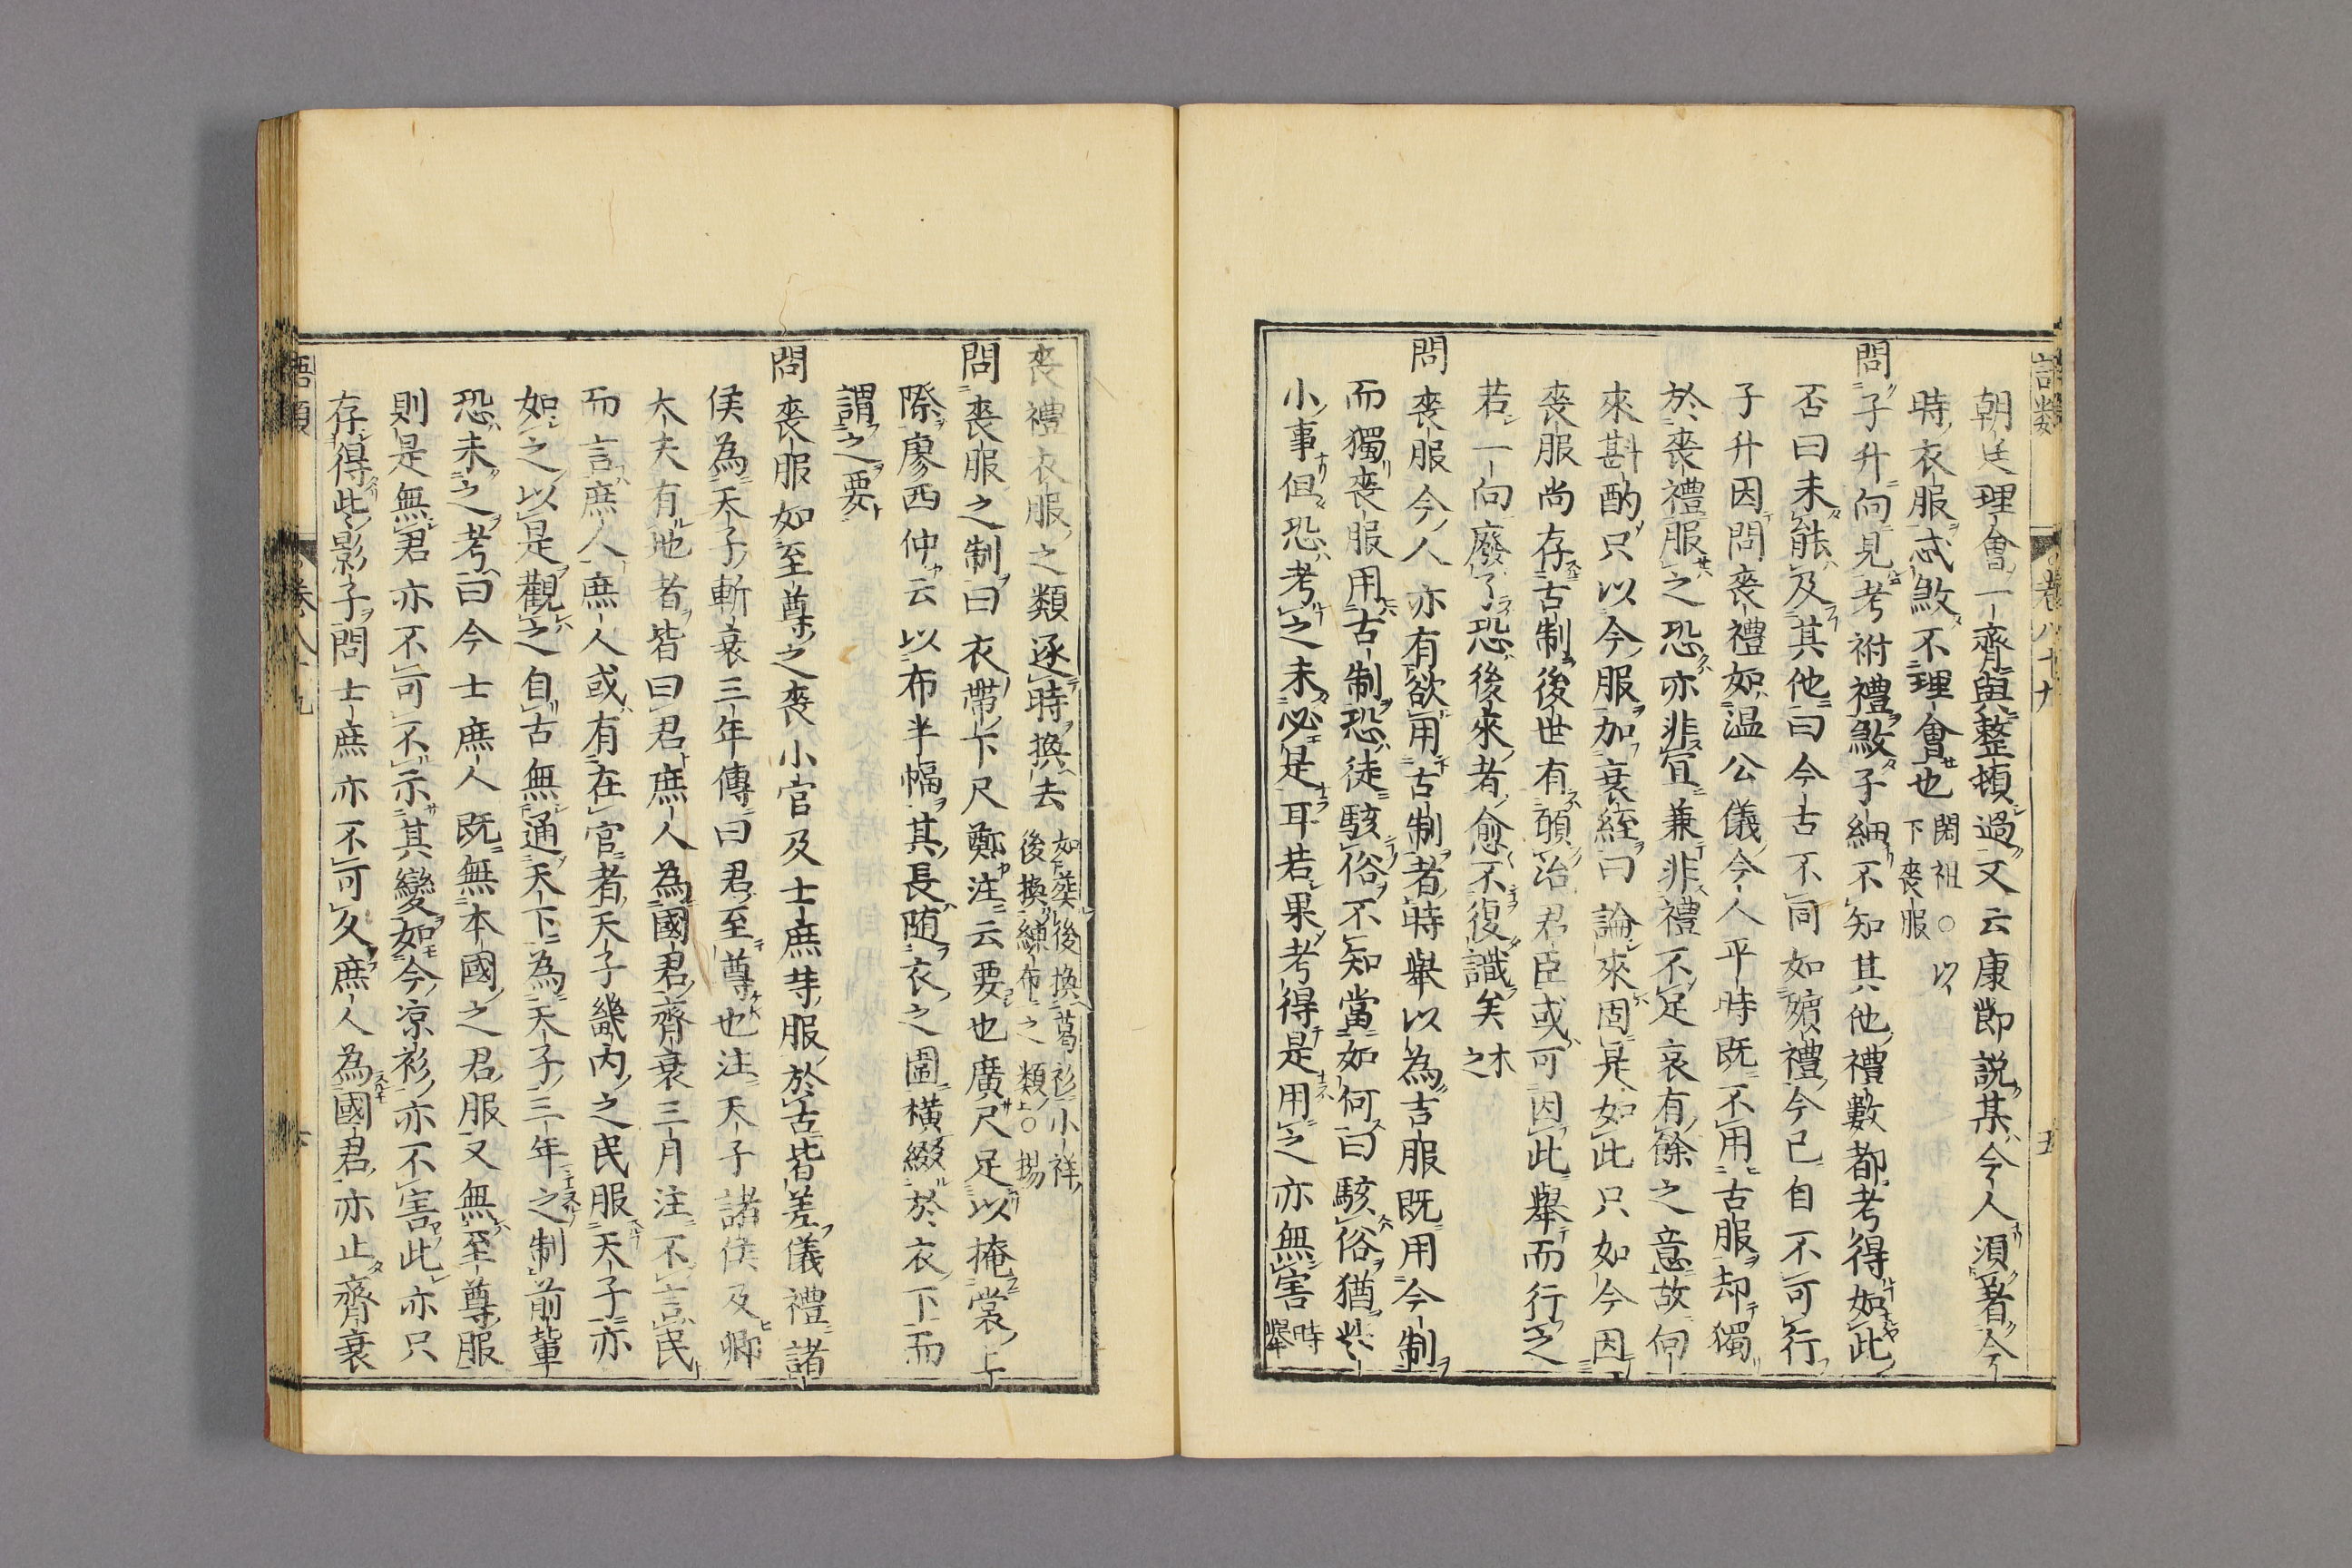 朝廷理會一齊與整頓過又云康節説某今人須著今
時衣服忒煞不理會也閎祖○以下喪服
問子升向見考祔禮煞子細不知其他禮數都考得如此
否曰未能及其他曰今古不同如殯禮今已自不可行
子升因問喪禮如温公儀今人平時既不用古服却獨
於喪禮服之恐亦非宜兼非禮不足哀有餘之意故向
來斟酌只以今服加衰絰曰論來固是如此只如今因
喪服尚存古制後世有願治君臣或可因此舉而行之
若一向廢了恐後來者愈不復識矣木之
問喪服今人亦有欲用古制者時舉以為吉服既用今制
而獨喪服用古制恐徒駭俗不知當如何曰駭俗猶些
小事但恐考之未必是耳若果考得是用之亦無害時舉
喪禮衣服之類逐時換去如葬後換葛衫小祥後換練布之類○揚
問喪服之制曰衣帶下尺鄭注云要也廣尺足以掩裳上
際廖西仲云以布半幅其長随衣之圍横綴於衣下而
謂之要
問喪服如至尊之喪小官及士庶等服於古皆差儀禮諸
侯為天子斬衰三年傳曰君至尊也注天子諸侯及卿
大夫有地者皆曰君庶人為國君齊衰三月注不言民
而言庶人庶人或有在官者天子畿内之民服天子亦
如之以是觀之自古無通天下為天子三年之制前輩
恐未之考曰今士庶人既無本國之君服又無至尊服
則是無君亦不可不示其變如今凉衫亦不害此亦只
存得此影子問士庶亦不可久庶人為國君亦止齊衰
語類 卷八十九